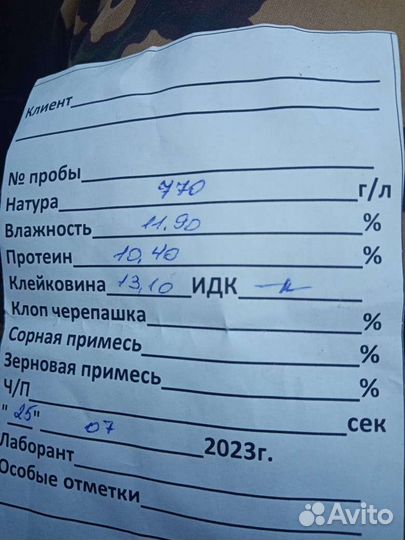 Клиент
№ пробы
Натура 770 г/л
Влажность 11,90 %
Протеин 10,40 %
Клейковина 13,10 ИДК %
Клоп черепашка %
Сорная примесь %
Зерновая примесь %
Ч/П сек
"25" 07 2023г.
Лаборант
Особые отметки
Avito